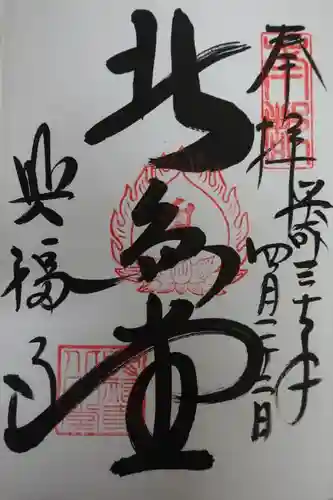 奉拝
平成三十年
四月二十二日
北円堂
興福寺